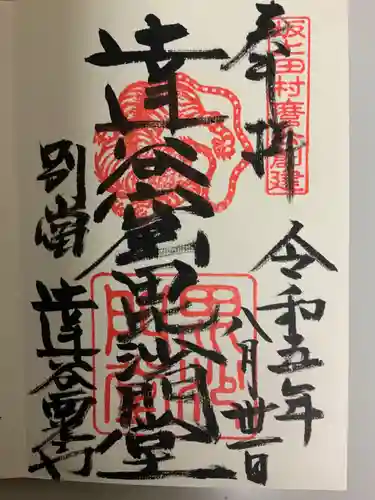 奉拝
坂上田村麿公創建
令和五年
八月卅一日
達谷窟毘沙門堂
別當
達谷西光寺